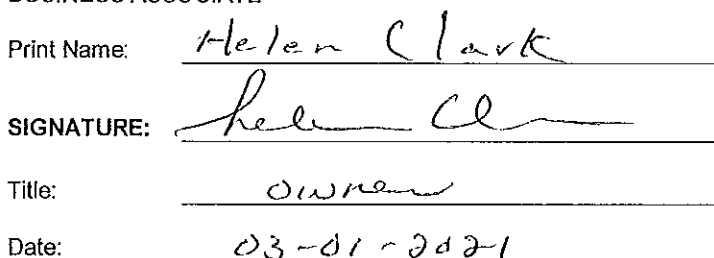 BUSINESS ASSOCIATE
Print Name: Helen Clark
SIGNATURE: Helen Cl
Title: Owner
Date: 03-01-2021